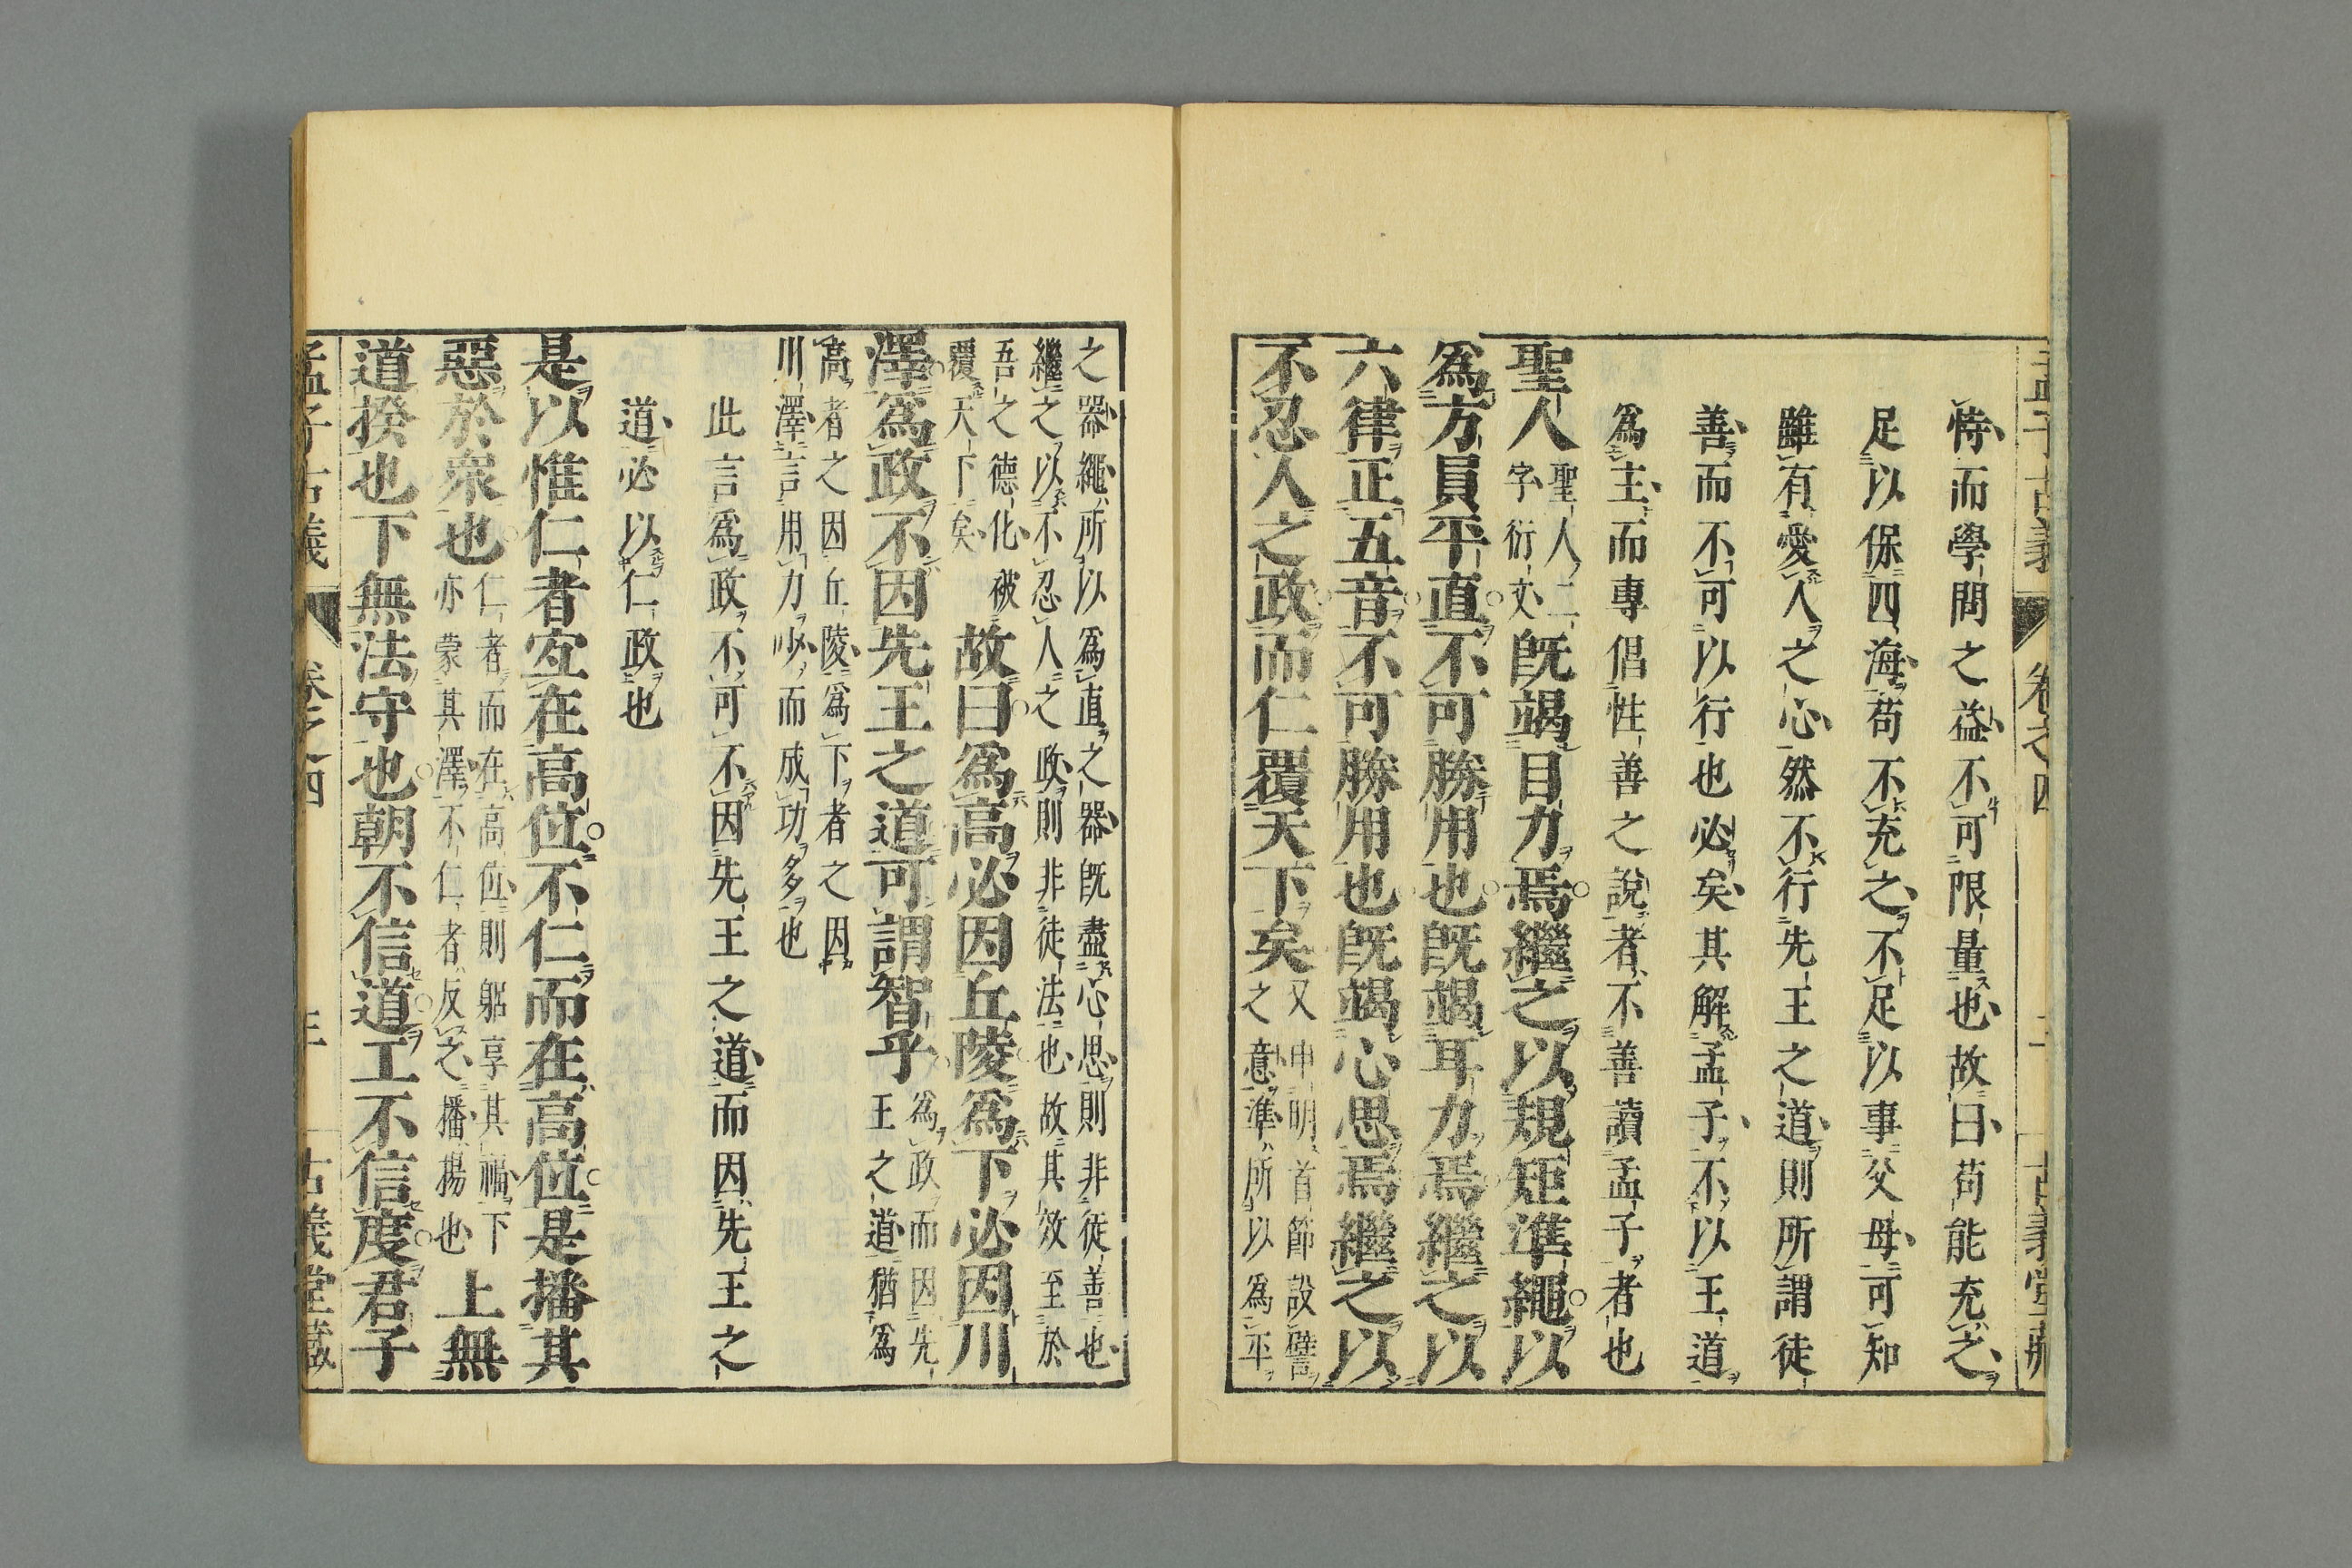 恃而學問之益不可限量也故曰苟能充之
足以保四海苟不充之不足以事父母可知
雖有愛人之心然不行先王之道則所謂徒
善而不可以行也必矣其解孟子不以王道
爲主而專倡性善之說者不善讀孟子者也
聖人聖人二字衍文既竭目力焉繼之以規矩準繩以
爲方員平直不可勝用也既竭耳力焉繼之以
六律正五音不可勝用也既竭心思焉繼之以
不忍人之政而仁覆天下矣又申明首節設譬之意準所以爲平
之器繩所以爲直之器既盡心思則非徒善也
繼之以不忍人之政則非徒法也故其效至於
吾之德化被覆天下矣故曰爲高必因丘陵爲下必因川
澤爲政不因先王之道可謂智乎爲政而因先王之道猶爲
高者之因丘陵爲下者之因
川澤言用力少而成功多也
此言爲政不可不因先王之道而因先王之
道必以仁政也
是以惟仁者宐在高位不仁而在高位是播其
惡於衆也仁者而在高位則躬享其福下亦蒙其澤不仁者反之播揚也上無
道揆也下無法守也朝不信道工不信度君子
孟子古義 卷之四 三 古義堂藏